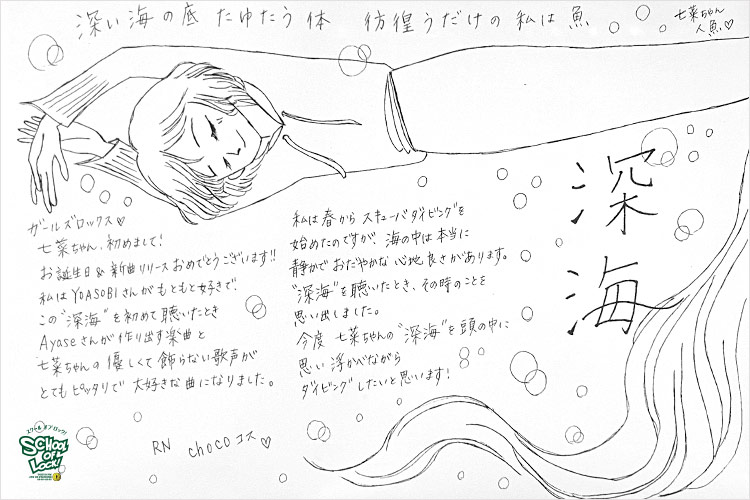 深い海の底 たゆたう体 彷徨うだけの私は魚
七菜ちゃん
人魚♡
深海
ガールズロックス♡
七菜ちゃん、初めまして!
お誕生日&新曲リリースおめでとうございます!!
私はYOASOBIさんがもともと好きで、
この"深海"を初めて聴いたとき
Ayaseさんが作り出す楽曲と
七菜ちゃんの優しくて飾らない歌声が
とてもピッタリで 大好きな曲になりました。
私は春からスキューバダイビングを
始めたのですが、海の中は本当に
静かでおだやかな心地良さがあります。
"深海"を聴いたとき、その時のことを
思い出しました。
今度 七菜ちゃんの"深海"を頭の中に
思い浮かべながら
ダイビングしたいと思います!
RN chocoコス♡
スクールオブロック!
SCHOOL
OF
LOCK!